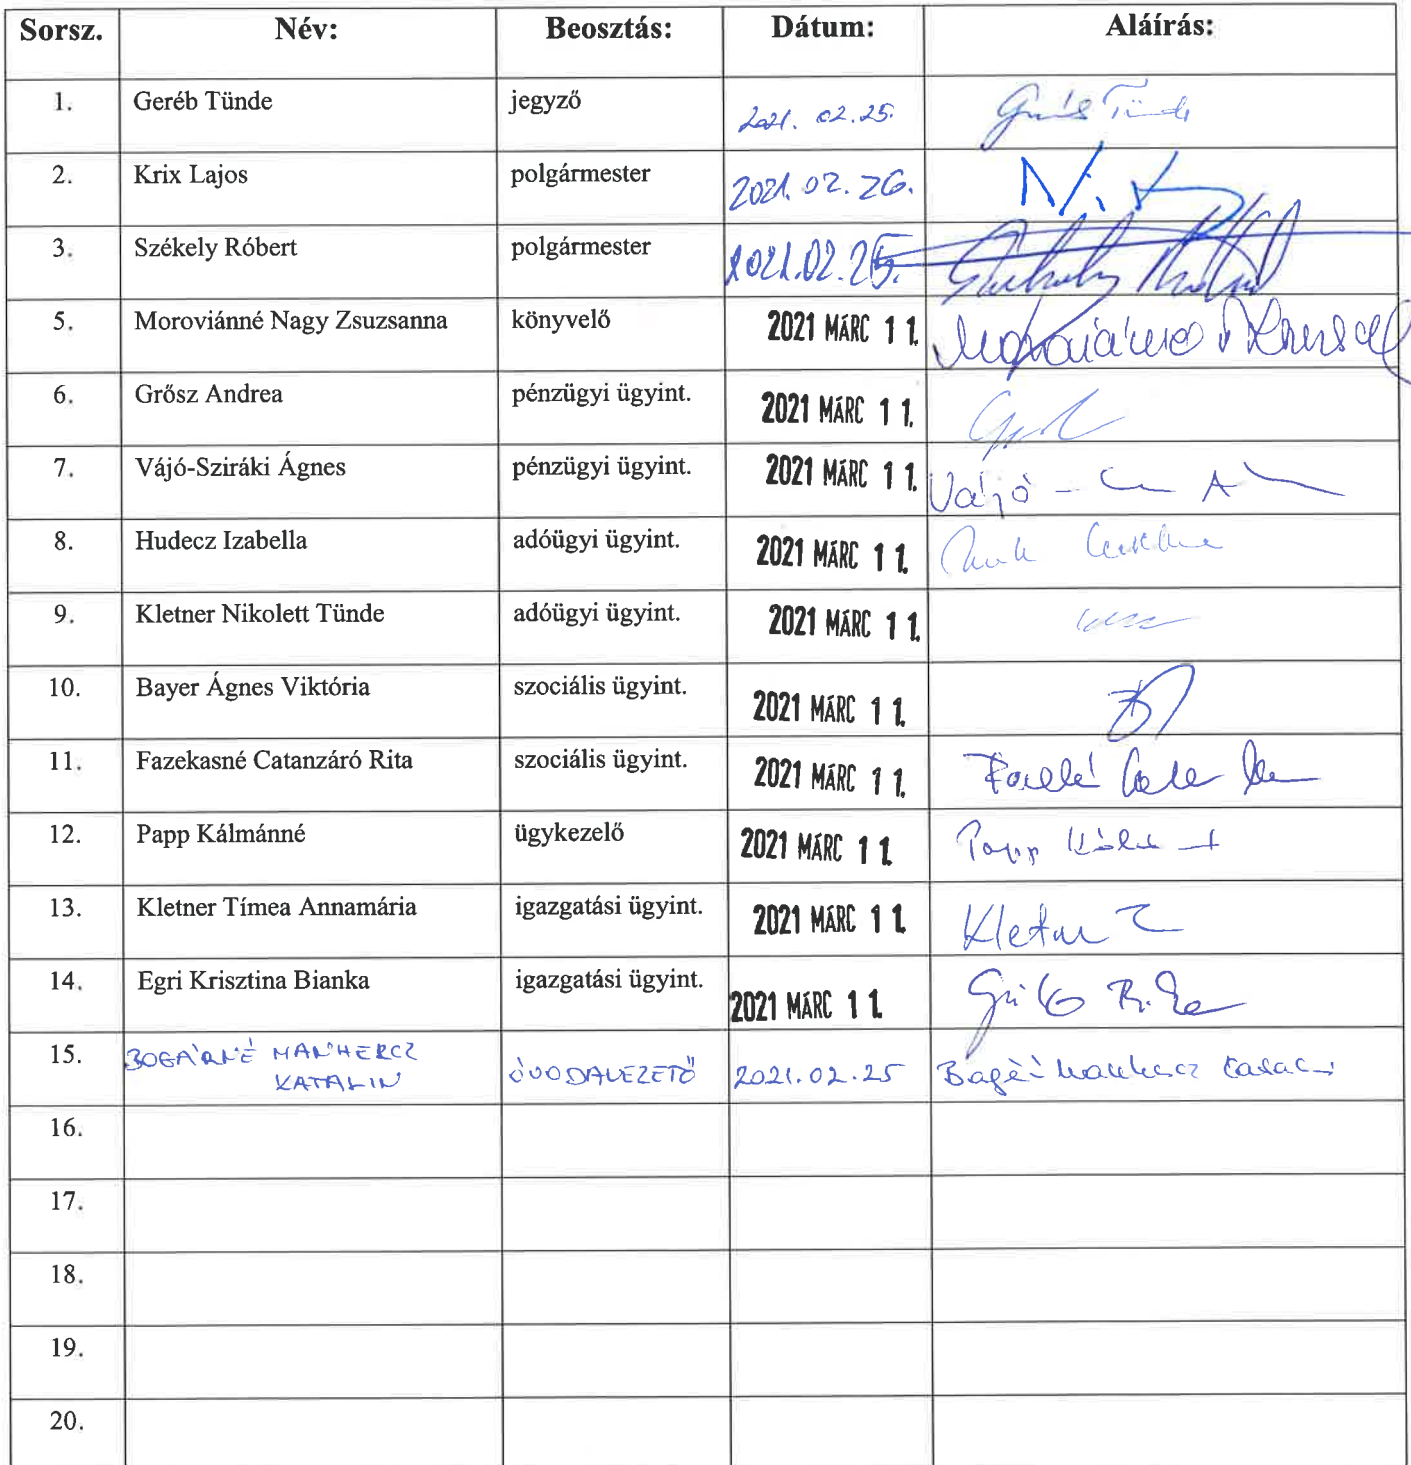 Sorsz. Név: Beosztás: Dátum: Aláírás:
1. Geréb Tünde jegyző 2021. 02.25.
2. Krix Lajos polgármester 2021. 02. 26.
3. Székely Róbert polgármester 2021.02.25.
5. Moroviánné Nagy Zsuzsanna könyvelő 2021 MÁRC 11.
6. Grősz Andrea pénzügyi ügyint. 2021 MÁRC 11.
7. Vájó-Sziráki Ágnes pénzügyi ügyint. 2021 MÁRC 11. Vájó-
8. Hudecz Izabella adóügyi ügyint. 2021 MÁRC 11.
9. Kletner Nikolett Tünde adóügyi ügyint. 2021 MÁRC 11.
10. Bayer Ágnes Viktória szociális ügyint. 2021 MÁRC 11.
11. Fazekasné Catanzáró Rita szociális ügyint. 2021 MÁRC 11.
12. Papp Kálmánné ügykezelő 2021 MÁRC 11. Papp
13. Kletner Tímea Annamária igazgatási ügyint. 2021 MÁRC 11.
14. Egri Krisztina Bianka igazgatási ügyint. 2021 MÁRC 11.
15. BOGÁRNÉ MANHERCZ
KATALIN ÓVODAVEZETŐ 2021.02.25
16.
17.
18.
19.
20.